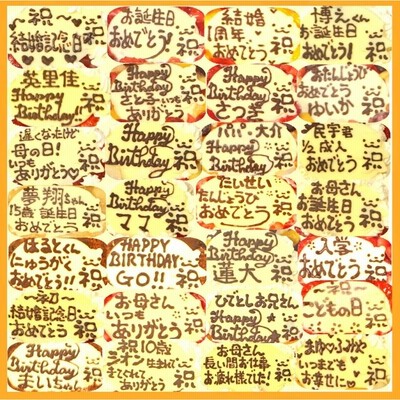 ～祝～
結婚記念日
♡♡♡♡
お誕生日
おめでとう
祝
結婚
1周年
おめでとう
祝
博えくん
お誕生日
おめでとう!
祝
英里佳
Happy
Birthday!!
祝
Happy
Birthday
さとる いつも
ありがとう
祝
Happy
Birthday
こうき
祝
おたんじょうび
おめでとう
ゆいか
祝
遅くなったけど
母の日!
いつも
ありがとう♡
祝
Happy
Birthday
祝
パパ・大介
Happy
Birthday
祝
民宇君
1/2成人
おめでとう
祝
夢翔ちゃん
15歳 誕生日
おめでとう
祝
Happy
Birthday
ママ
祝
たいせい
たんじょうび
おめでとう
祝
お母さん
お誕生日
おめでとう
祝
はるとくん
にゅうがく
おめでとう!
祝
HAPPY
BIRTHDAY
GO!!
祝
Happy
Birthday
蓮大
祝
入学
おめでとう
祝
結婚記念日
おめでとう
祝
お母さん
いつも
ありがとう
祝
ひでとしお兄さん
Happy
Birthday★
祝
～祝～
こどもの日
祝
Happy
Birthday
まいちゃん
祝
祝10歳
ライオン 生まれて
きてくれて
ありがとう
祝
お母さん
長い間お仕事
お疲れ様でした!
祝
まゆ♡ふみや
いつまでも
お幸せに♡
祝